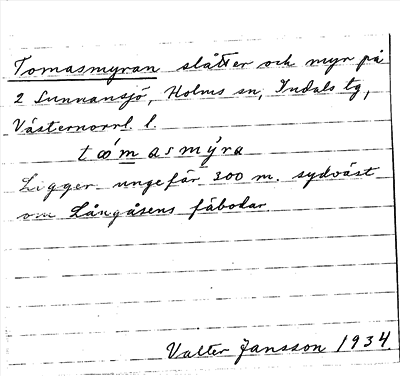 Tomasmyran slåtter och myr på
2 Sunnansjö, Holms sn, Indals tg,
Västernorrl. l.
Ligger ungefär 300 m. sydväst
om Långåsens fäbodar.
Valter Jansson 1934.